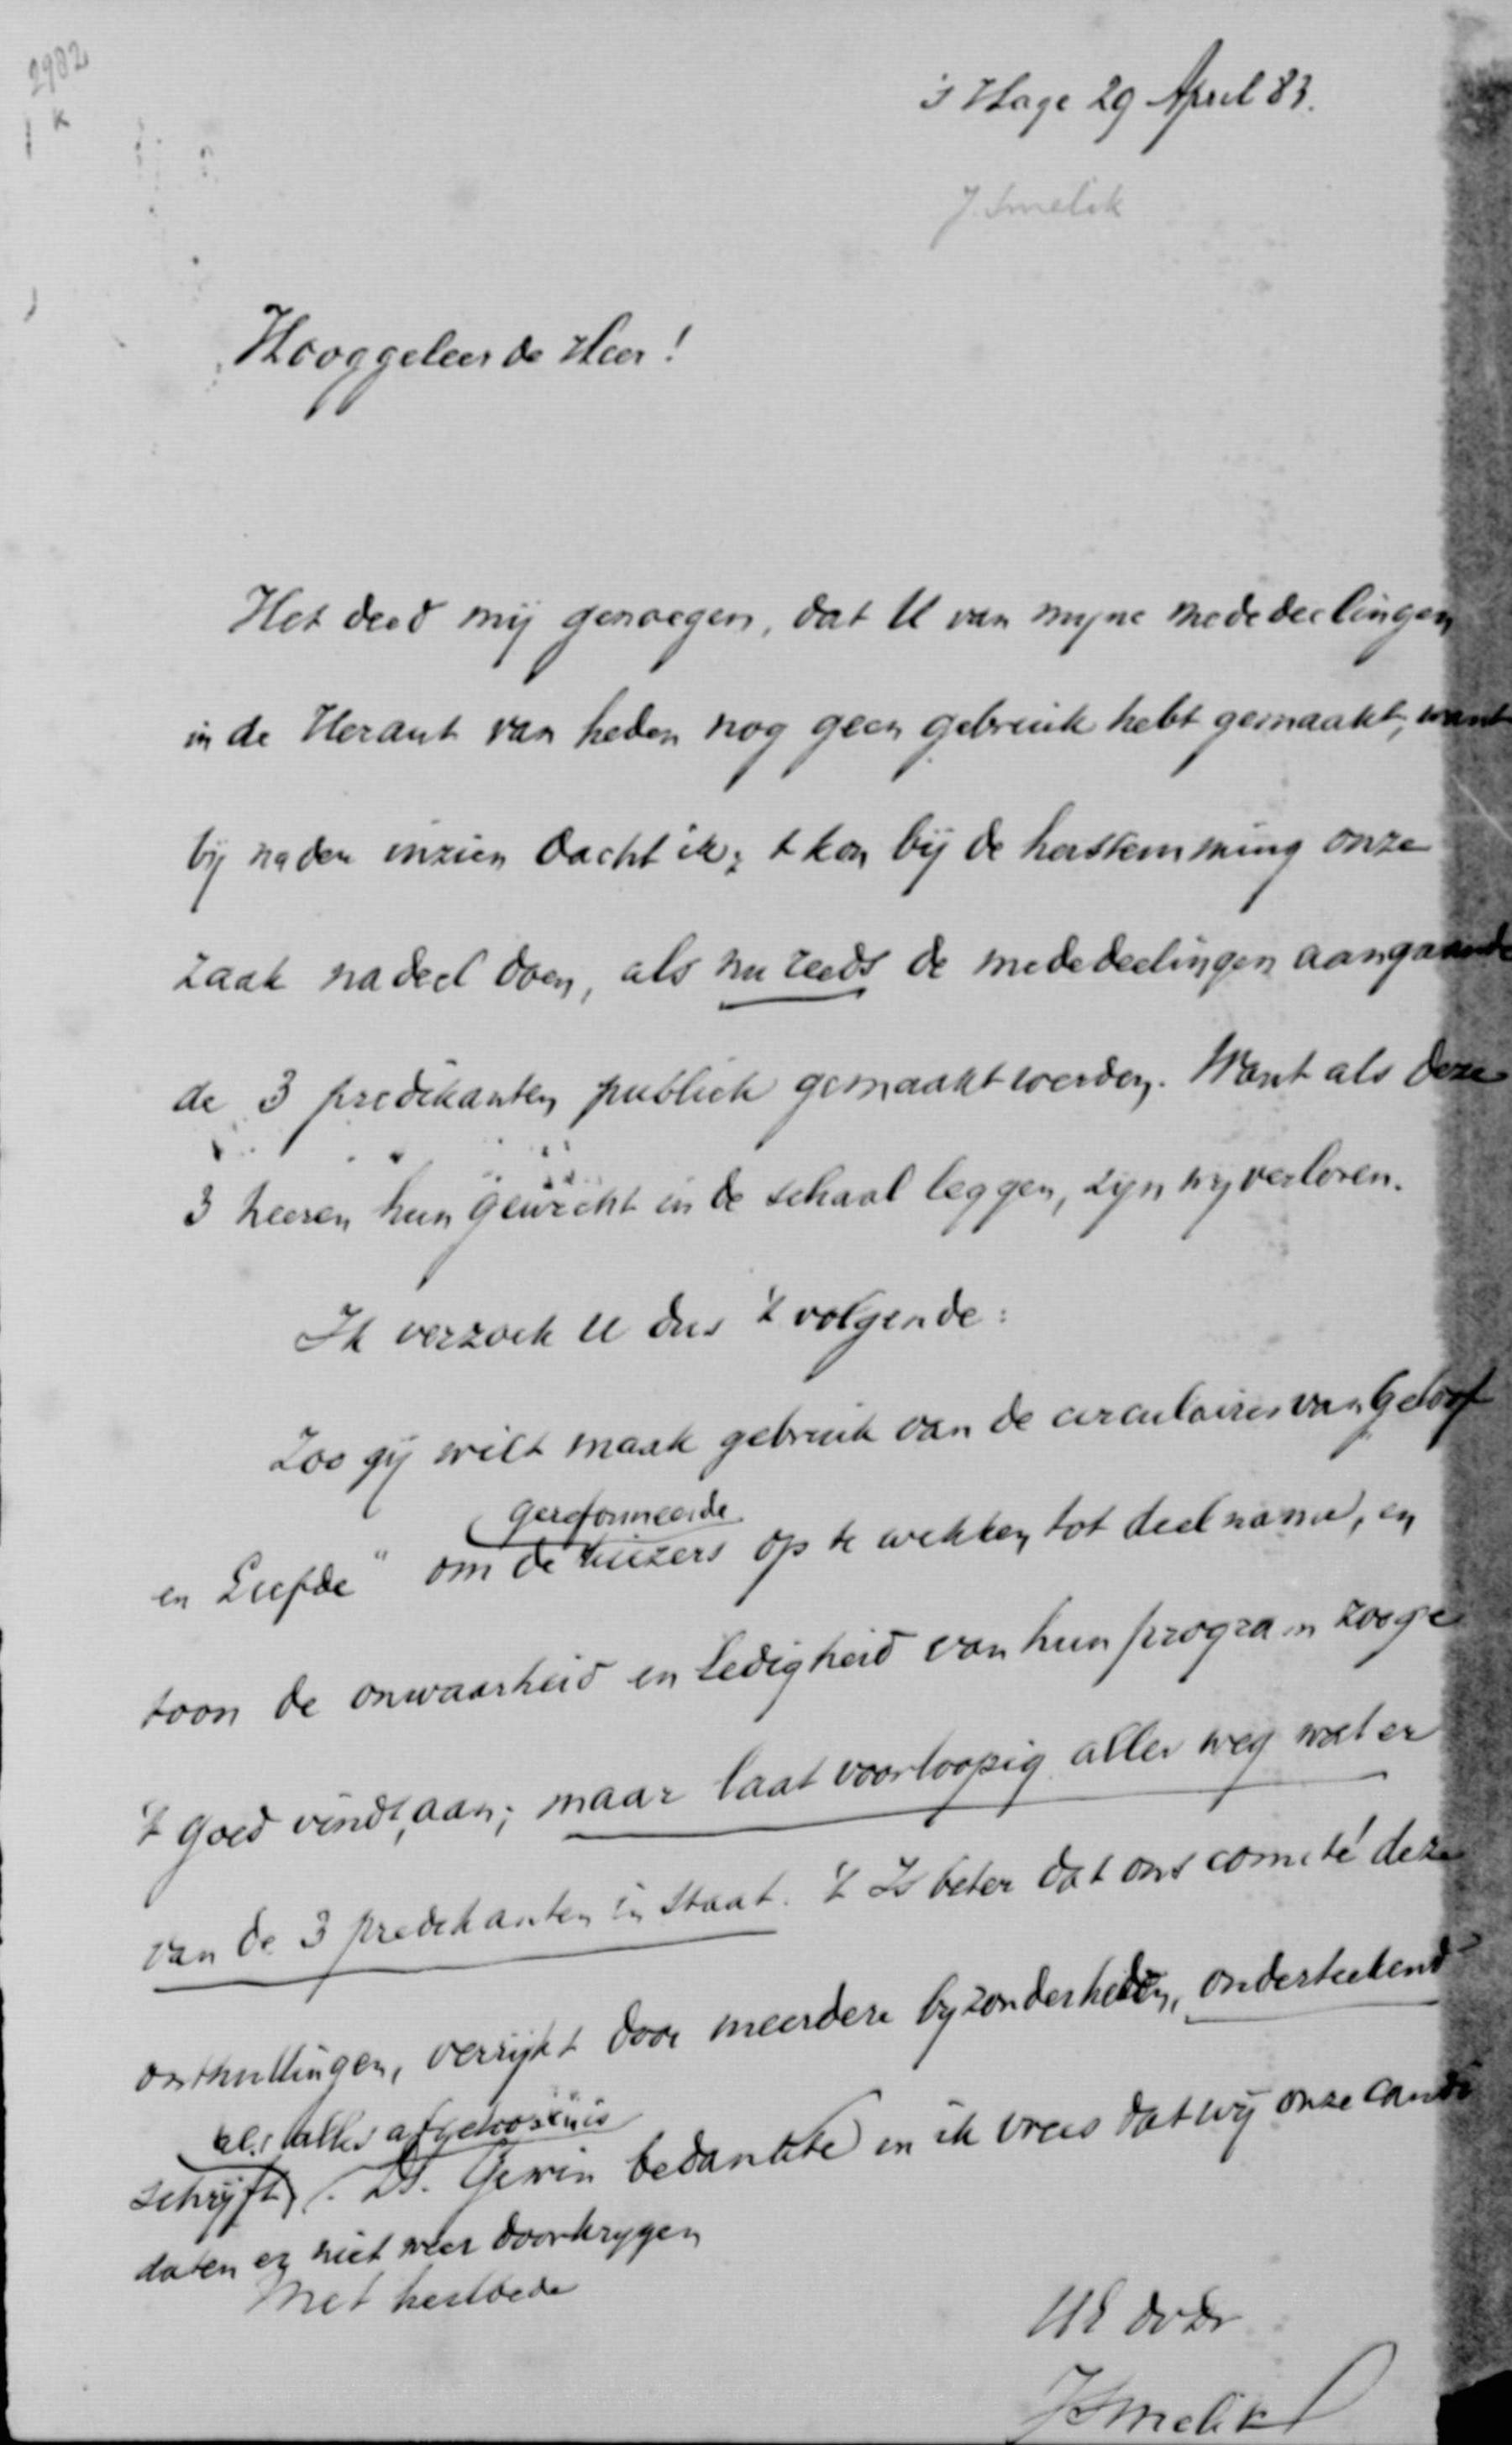 2982
K
's Hage 29 April 83.
J. Smelik
Hooggeleerde Heer!
Het deed mij genoegen, dat U van mijne mededeelingen
in de Heraut van heden nog geen gebruik hebt gemaakt, want
bij nader inzien dacht ik; 't kon bij de herstemming onze
zaak nadeel doen, als nu reeds de mededeelingen aangaande
de 3 predikanten publiek gemaakt werden. Want als deze
3 heeren hun gewicht in de schaal leggen, zijn wij verloren.
Ik verzoek U dus 't volgende:
Zoo gij wilt maak gebruik van de circulaires van Geloof
en Liefde" om de gereformeerde kiezers op te wekken tot deelname, en
toon de onwaarheid en ledigheid van hun program zoo ge
't goed vindt, aan; maar laat voorloopig alles weg wat er
van de 3 predikanten in staat. 't Is beter dat ons comité deze
onthullingen, verrijkt door meerdere bijzonderheden, onderteekend
schrijft als alles afgeloopen is. Ds. Gewin bedankte en ik vrees dat wij onze candi
daten er niet meer doorkrijgen
Met heilbede
UE dvdr
J Smelik